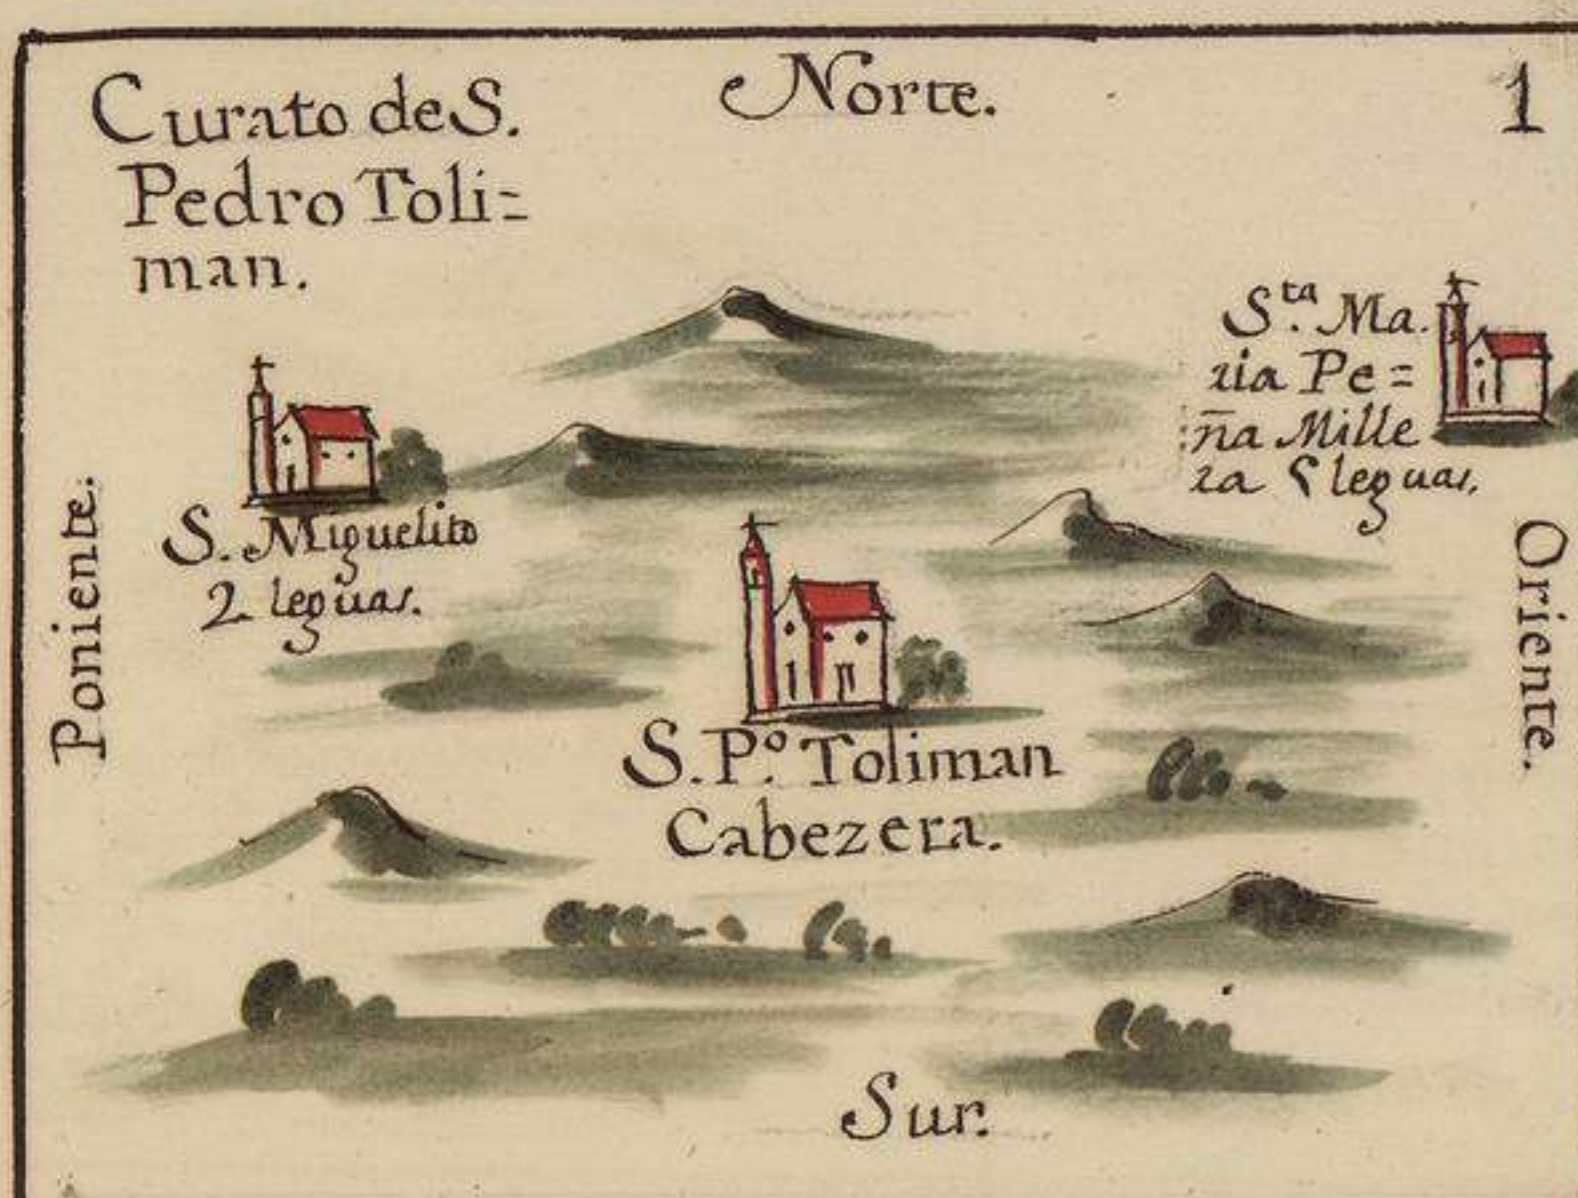 Curato de S.
Pedro Toli=
man.
Norte.
1
S.ta Ma.
ria Pe=
ña Mille
ra 5 leguas.
S. Miguelito
2 leguas.
Poniente.
Oriente.
S. P.º Toliman
Cabezera.
Sur.